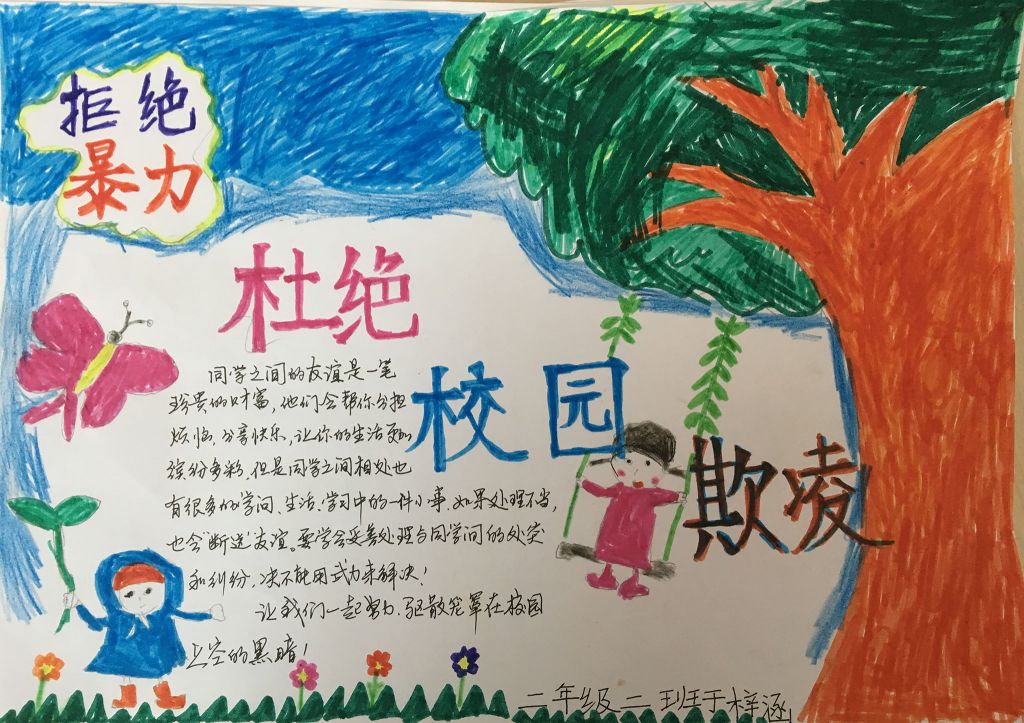 拒绝
暴力
杜绝
校园
欺凌
同学之间的友谊是一笔
珍贵的财富,他们会帮你分担
烦恼,分享快乐,让你的生活更加
缤纷多彩,但是同学之间相处也
有很多的学问、生活、学习中的一件小事,如果处理不当,
也会"断送"友谊。要学会妥善处理与同学间的冲突
和纠纷,决不能用武力来解决!
让我们一起努力,驱散笼罩在校园
上空的黑暗!
二年级二班于梓涵